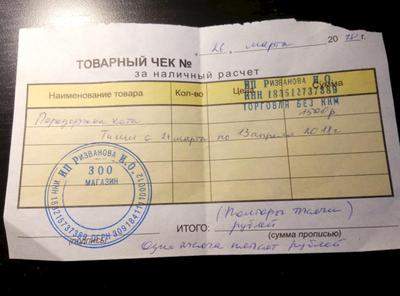 26 марта 2018 г.
ТОВАРНЫЙ ЧЕК №
за наличный расчет
Наименование товара Кол-во Цена Сумма
ИП РИЗВАНОВА И.О.
ИНН 183512737389
ТОРГОВЛЯ БЕЗ ККМ
1500 р
Передержка кота
Тиши с 21 марта по 13 апреля 2018 г.
ИП РИЗВАНОВА И.О.
ЗОО
МАГАЗИН
(Полторы тысячи)
ИТОГО: рублей
(подпись) (сумма прописью)
Одна тысяча пятьсот рублей